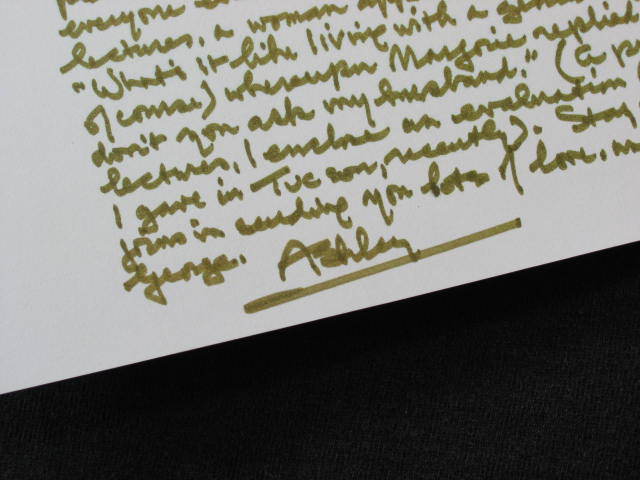 everyone
lectures, a woman
"What's it like living with a
of course) whereupon Marjorie replied
don't you ask my husband." (a
lectures, I enclose an evaluation
I gave in Tucson, recently). Stay
joins in sending you lots of love.
George. Ashley